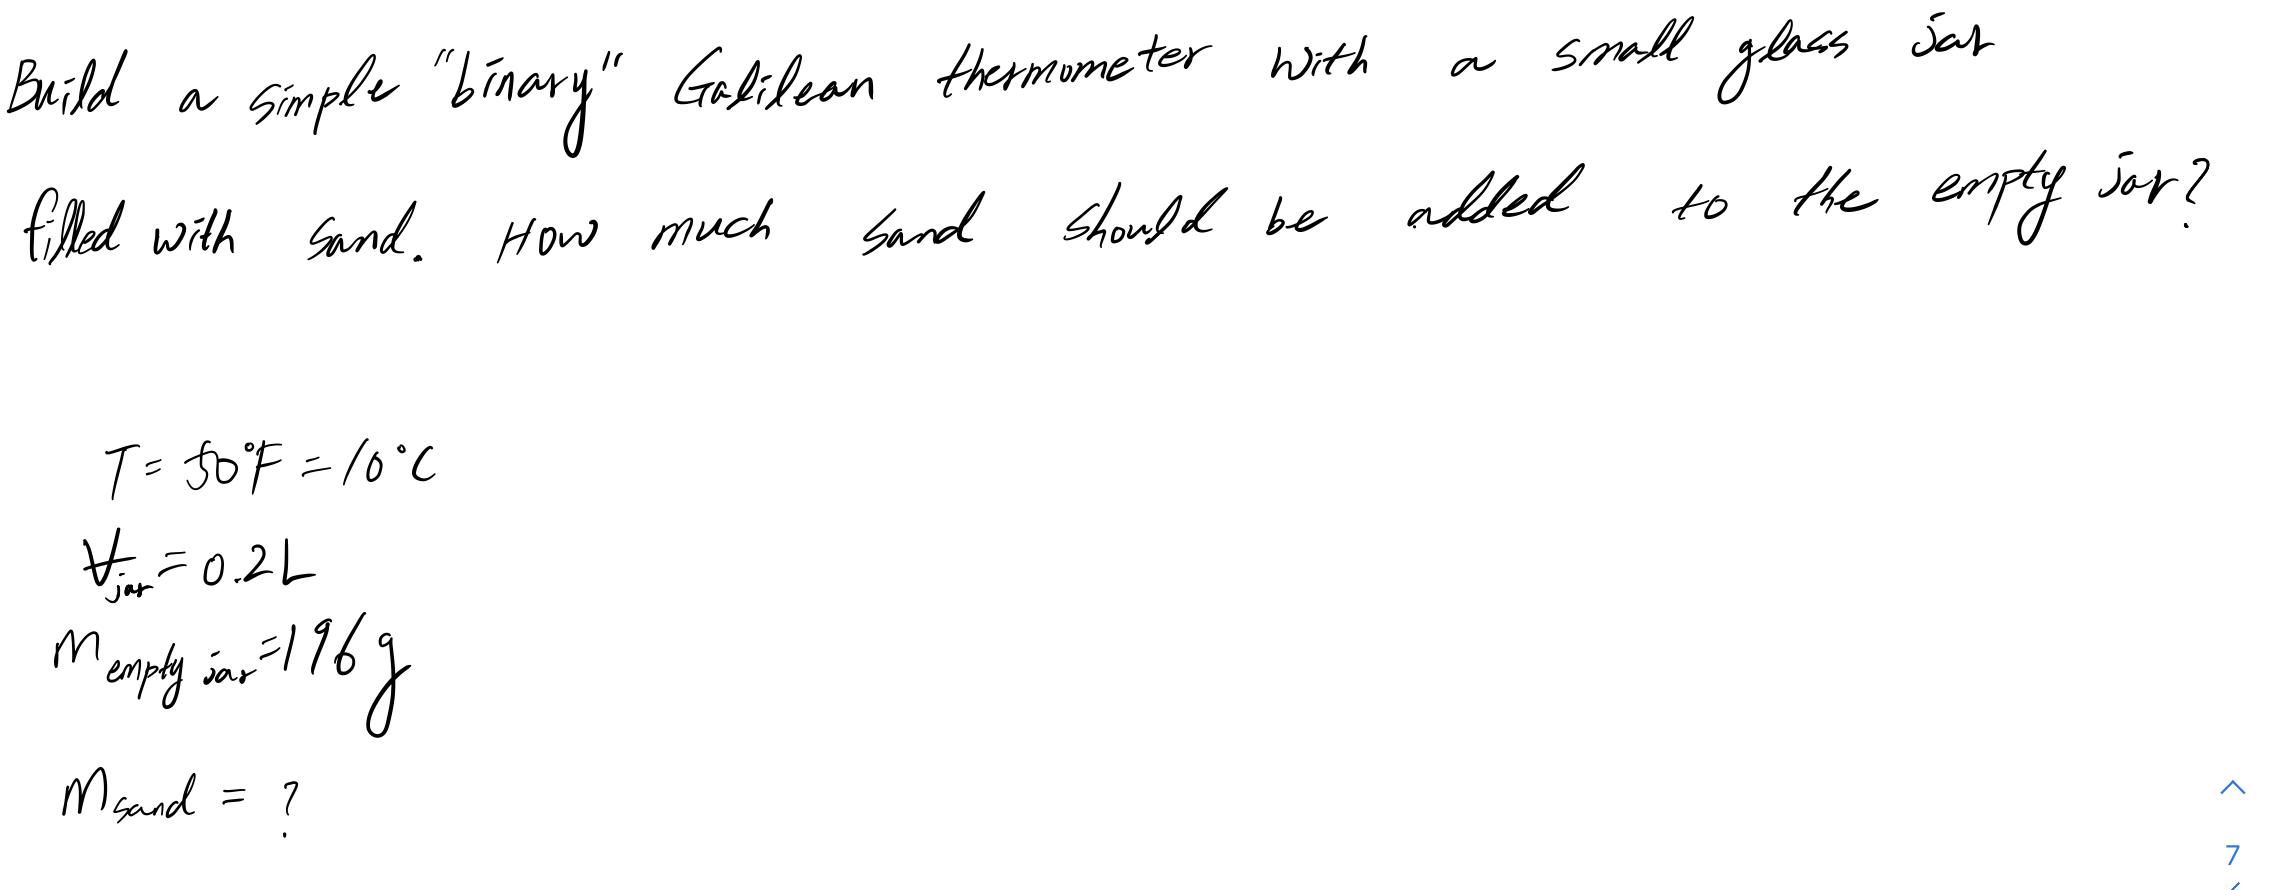 Build a simple "binary" Galilean thermometer with a small glass jar
filled with sand. How much sand should be added to the empty jar?
T = 50°F = 10°C
V jar = 0.2L
m empty jar = 196 g
m sand = ?
7